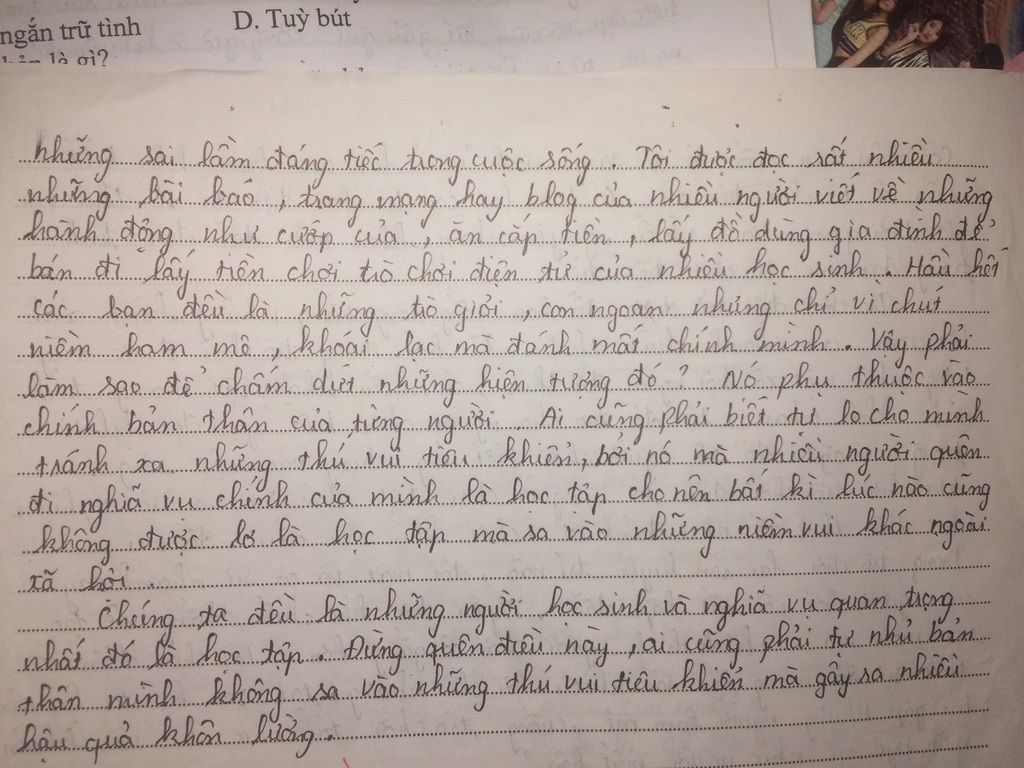 ngắn trữ tình
D. Tuỳ bút
là gì?
những sai lầm đáng tiếc trong cuộc sống. Tôi được đọc rất nhiều
những bài báo, trang mạng hay blog của nhiều người viết về những
hành động như cướp của, ăn cắp tiền, lấy đồ dùng gia đình để
bán đi lấy tiền chơi trò chơi điện tử của nhiều học sinh. Hầu hết
các bạn đều là những trò giỏi, con ngoan nhưng chỉ vì chút
niềm ham mê, khoái lạc mà đánh mất chính mình. Vậy phải
làm sao để chấm dứt những hiện tượng đó? Nó phụ thuộc vào
chính bản thân của từng người. Ai cũng phải biết tự lo cho mình
tránh xa những thú vui tiêu khiển, bởi nó mà nhiều người quên
đi nghiã vụ chính của mình là học tập cho nên bất kì lúc nào cũng
không được lơ là học tập mà sa vào những niềm vui khác ngoài
xã hội.
Chúng ta đều là những người học sinh và nghiã vụ quan trọng
nhất đó là học tập. Đừng quên điều này, ai cũng phải tự nhủ bản
thân mình không sa vào những thú vui tiêu khiển mà gây ra nhiều
hậu quả khôn lường.